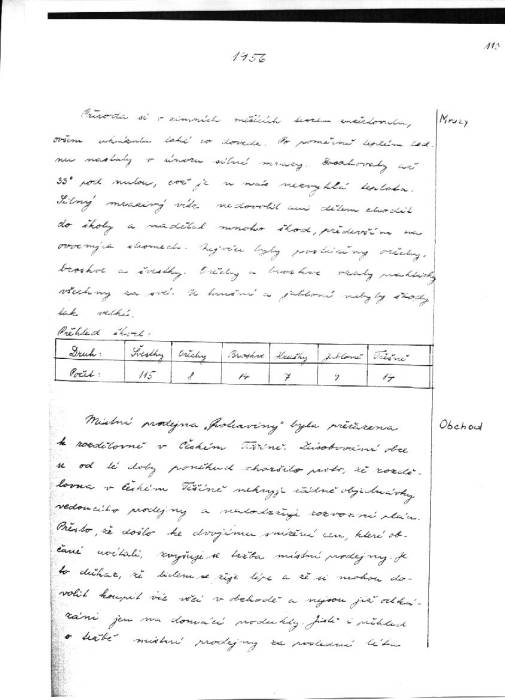 115
1956
Příroda si v zimních měsících trochu,
ovšem ukázala také co dovede. Po poměrně teplém led-
nu nastaly v únoru silné mrazy. Dosahovaly až
33° pod nulou, což je u nás nezvyklá teplota.
Silný mrazivý vítr nedovolil ani dětem chodit
do školy a nadělal mnoho škod, především na
ovocných stromech. Nejvíce byly postiženy ořechy,
broskve a švestky. Ořechy a broskve
všechny za své. Na hrušni a jabloni nebyly škody
tak velké.
Mrazy
Přehled škod:
Druh: Švestky Ořechy Broskve Hrušky Jabloně Třešně
Počet: 115 8 14 7 14
Místní prodejna „Potraviny" byla přeřazena
k rozdělovně v Českém Těšíně. Zásobování obce
se od té doby poněkud zhoršilo proto, že rozdě-
lovna v Českém Těšíně nekryje žádné objednávky
vedoucího prodejny a nedodržuje rozvozní plán.
Přesto, že došlo ke dvojímu snížení cen, které ob-
čané uvítali, zvyšuje se tržba místní prodejny. Je
to důkaz, že lidem se žije lépe a že si mohou do-
volit koupit víc věcí v obchodě a nejsou již odká-
záni jen na domácí produkty. Jistě i přehled
o tržbě místní prodejny za poslední léta
Obchod